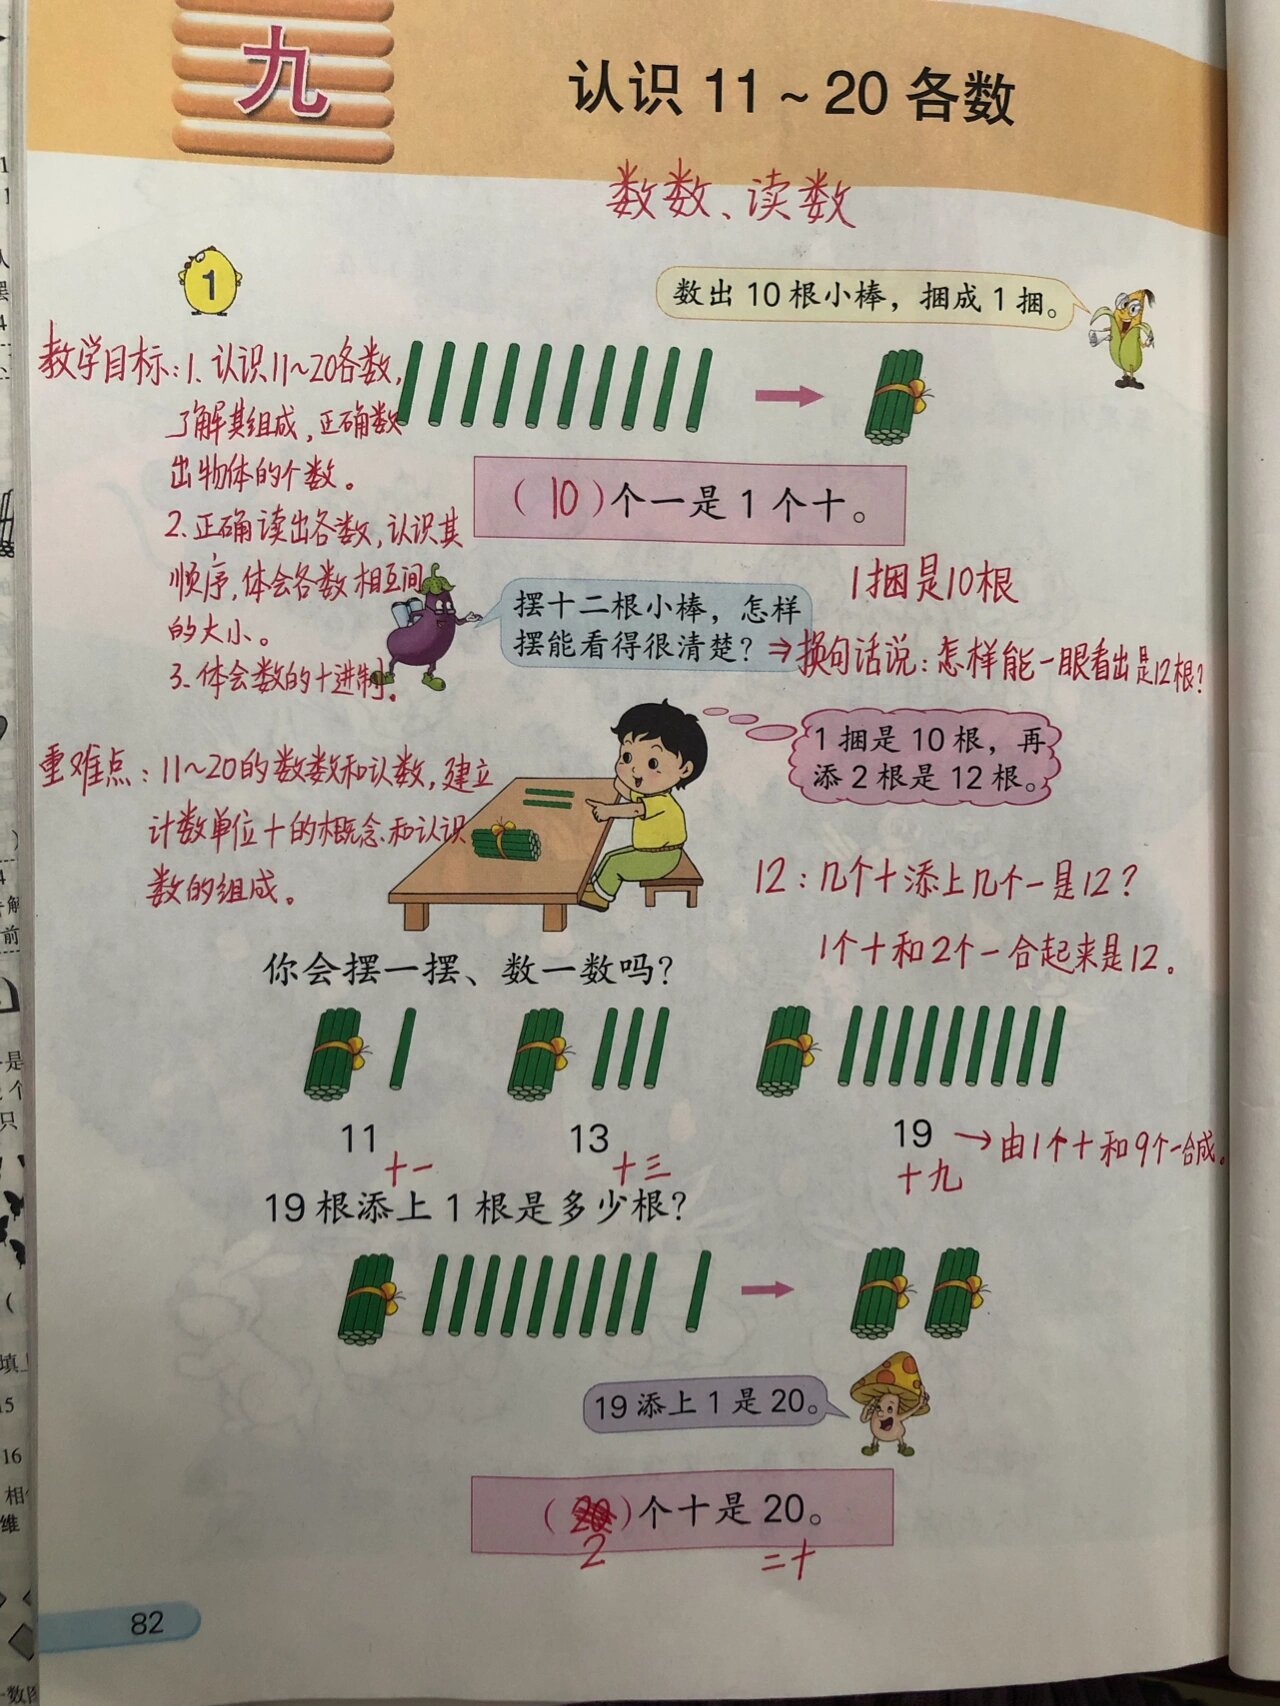 九
认识 11～20 各数
数数、读数
1
数出 10 根小棒，捆成 1 捆。
教学目标：1. 认识11～20各数，
了解其组成，正确数
出物体的个数。
2. 正确读出各数，认识其
顺序，体会各数相互间
的大小。
3. 体会数的十进制.
（10）个一是 1 个十。
1捆是10根
摆十二根小棒，怎样
摆能看得很清楚？
⇒换句话说：怎样能一眼看出是12根？
1 捆是 10 根，再
添 2 根是 12 根。
重难点：11～20的数数和认数，建立
计数单位十的概念和认识
数的组成。
12：几个十添上几个一是12？
1个十和2个一合起来是12。
你会摆一摆、数一数吗？
11 13 19 →由1个十和9个一合成。
十一 十三 十九
19 根添上 1 根是多少根？
19 添上 1 是 20。
（20）个十是 20。
2 二十
82